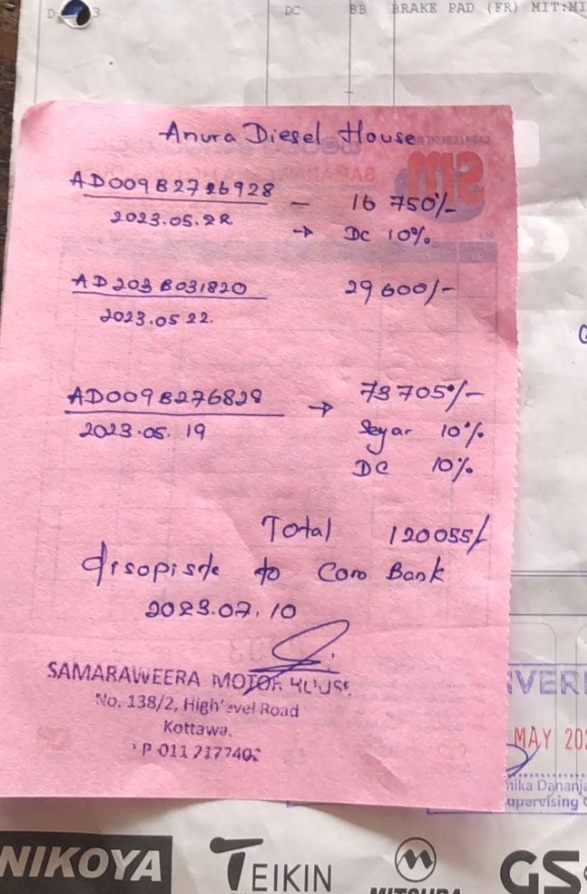 DC BB BRAKE PAD (FR) MIT:MI
Anura Diesel House
AD009B2726928 - 16 750/-
2023.05.22 → DC 10%
AD203B031820 29600/-
2023.05 22.
AD009B276829 → 73705/-
2023.05.19 Segar 10%
DC 10%
Total 120055/
drsopisde to Com Bank
2023.07.10
SAMARAWEERA MOTOR HOUSE
No. 138/2, High level Road
Kottawa.
MAY 202
upervising
NIKOYA TEIKIN MITSUBA GS